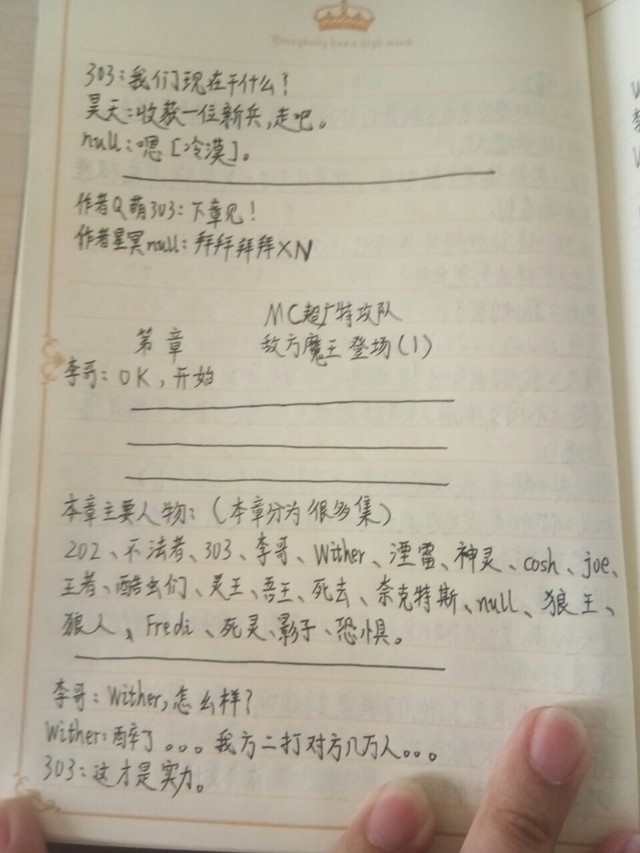 303:我们现在干什么?
昊天:收获一位新兵,走吧。
null:嗯[冷漠]。
作者Q萌303:下章见!
作者星冥null:拜拜拜拜XN
MC超厂特攻队
第 章 敌方魔王登场(1)
李哥:OK,开始
本章主要人物:(本章分为很多集)
202、不法者、303、李哥、Wither、湮雷、神灵、cosh、joe、
王者、酷虫们、灵王、吾王、死去、奈克特斯、null、狼王、
狼人、Fredi、死灵、影子、恐惧。
李哥:Wither,怎么样?
Wither:醉了。。。我方二打对方几万人。。。
303:这才是实力。